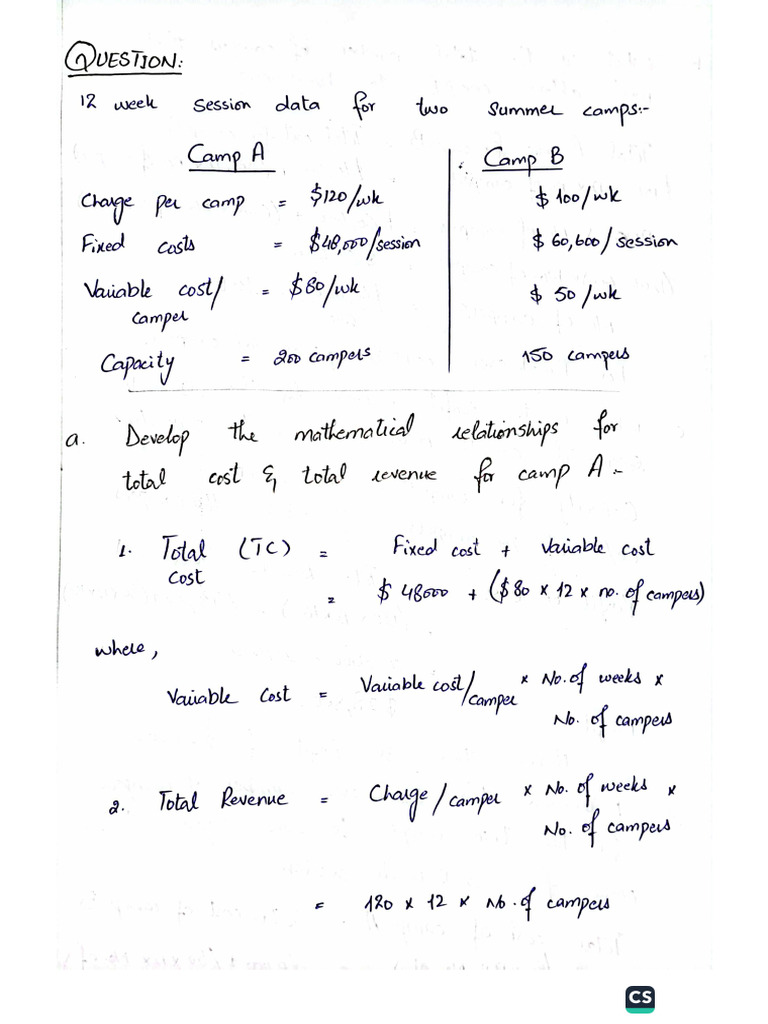 QUESTION:
12 week session data for two summer camps:-
Camp A
Camp B
Charge per camp = $120/wk
$100/wk
Fixed costs = $48,000/session
$60,600/session
Variable cost/ = $80/wk
camper
$50/wk
Capacity = 200 campers
150 campers
a. Develop the mathematical relationships for
total cost & total revenue for camp A :-
1. Total (TC) = Fixed cost + Variable cost
Cost
= $48000 + ($80 × 12 × no. of campers)
where,
Variable Cost = Variable cost/camper × No. of weeks ×
No. of campers
2. Total Revenue = Charge/camper × No. of weeks ×
No. of campers
= 120 × 12 × No. of campers
CS